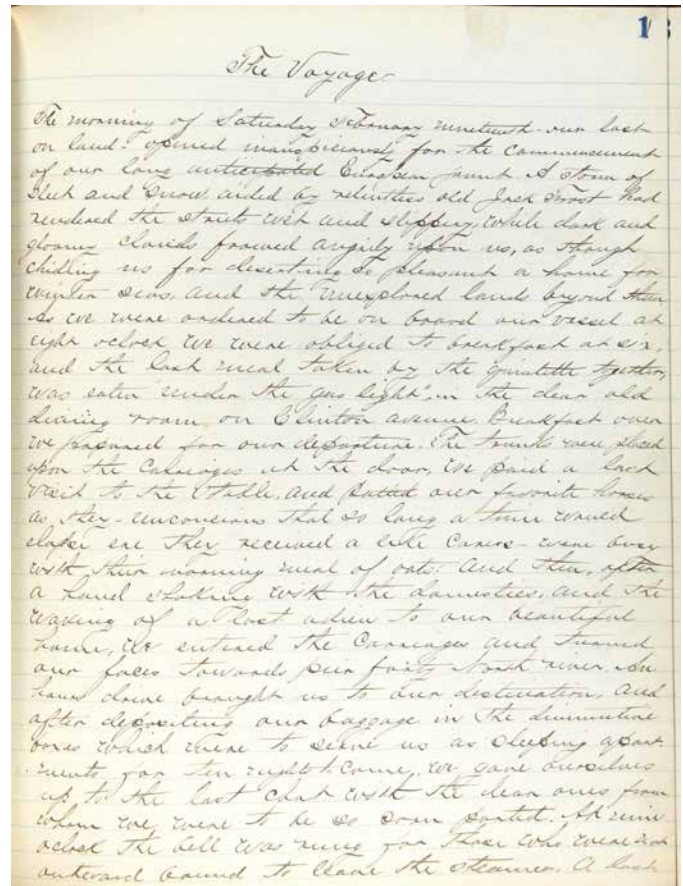 1
The Voyage
The morning of Saturday February nineteenth - our last
on land - opened inauspiciously for the commencement
of our long anticipated European jaunt. A storm of
sleet and snow, aided by relentless old Jack Frost had
rendered the streets wet and slippery, while dark and
gloomy clouds frowned angrily upon us, as though
chiding us for deserting so pleasant a home for
winter seas, and the unexplored lands beyond them
As we were ordered to be on board our vessel at
eight oclock we were obliged to breakfast at six,
and the last meal taken by the quintette together,
was eaten "under the gas light" in the dear old
dining room on Clinton avenue. Breakfast over
we prepared for our departure. The trunks were placed
upon the carriages at the door, we paid a last
visit to the stable, and patted our favorite horses
as they - unconscious that so long a time would
elapse ere they received a like caress - were busy
with their morning meal of oats: And then, after
a hand shaking with the domestics, and the
waving of a last adieu to our beautiful
home, we entered the carriages and turned
our faces towards pier forty North river. An
hours drive brought us to our destination, and
after depositing our baggage in the diminutive
boxes which were to serve us as sleeping apart-
ments for ten nights to come, we gave ourselves
up to the last chat with the dear ones from
whom we were to be so soon parted. At nine
oclock the bell was rung for those who were not
outward bound to leave the steamer. A last